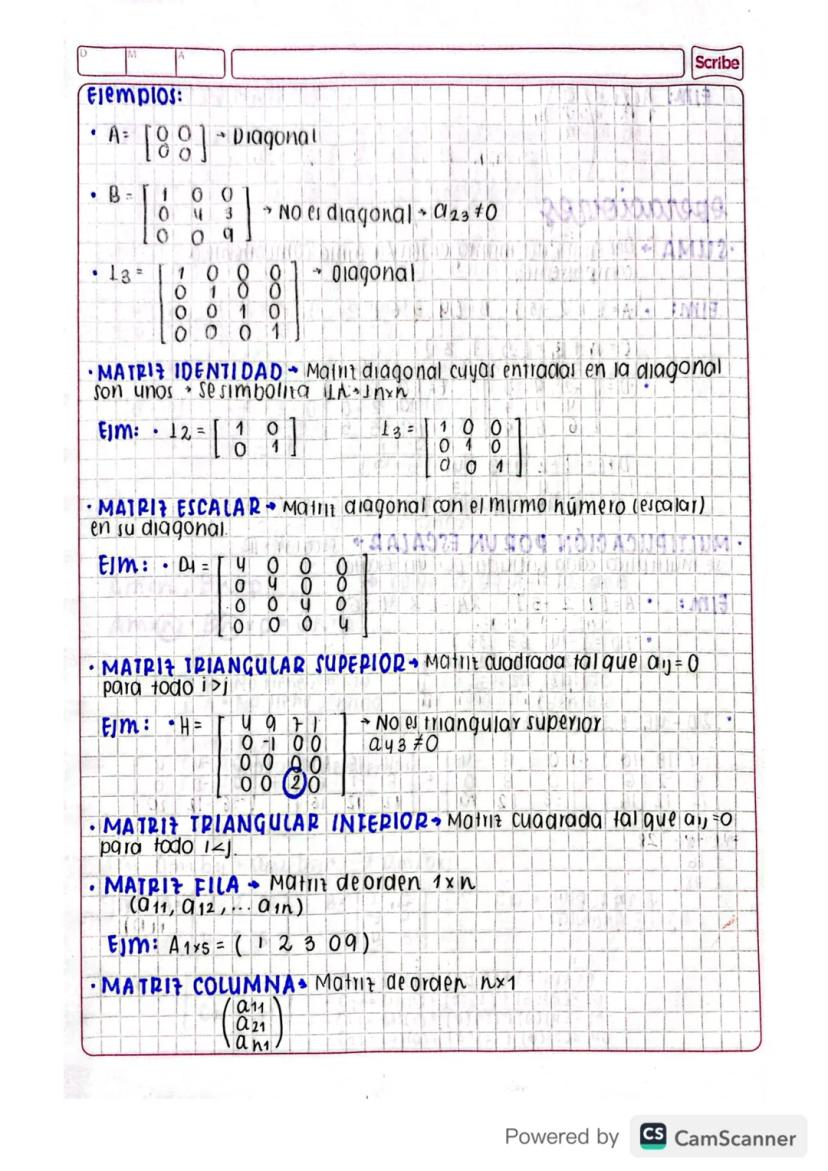 D M A
Scribe
Ejemplos:
• A= [0 0 → Diagonal
0 0]
• B = [1 0 0
0 4 3 → No es diagonal → a23≠0
0 0 9]
• I3 = [1 0 0 0 → Diagonal
0 1 0 0
0 0 1 0
0 0 0 1]
• MATRIZ IDENTIDAD → Matriz diagonal cuyas entradas en la diagonal
son unos → se simboliza
Ejm: • I2 = [1 0 I3 = [1 0 0
0 1] 0 1 0
0 0 1]
• MATRIZ ESCALAR → Matriz diagonal con el mismo número (escalar)
en su diagonal.
Ejm: • D4 = [4 0 0 0
0 4 0 0
0 0 4 0
0 0 0 4]
• MATRIZ TRIANGULAR SUPERIOR → Matriz cuadrada tal que aij = 0
para todo i>j
Ejm: • H = [4 9 7 1 → No es triangular superior
0 -1 0 0 a43 ≠0
0 0 0 0
0 0 2 0]
• MATRIZ TRIANGULAR INTERIOR → Matriz cuadrada tal que aij =0
para todo i<j.
• MATRIZ FILA → Matriz de orden 1xn
(a11, a12, ... a1n)
Ejm: A1x5 = ( 1 2 3 0 9 )
• MATRIZ COLUMNA → Matriz de orden nx1
(a11
a21
an1)
Powered by CS CamScanner